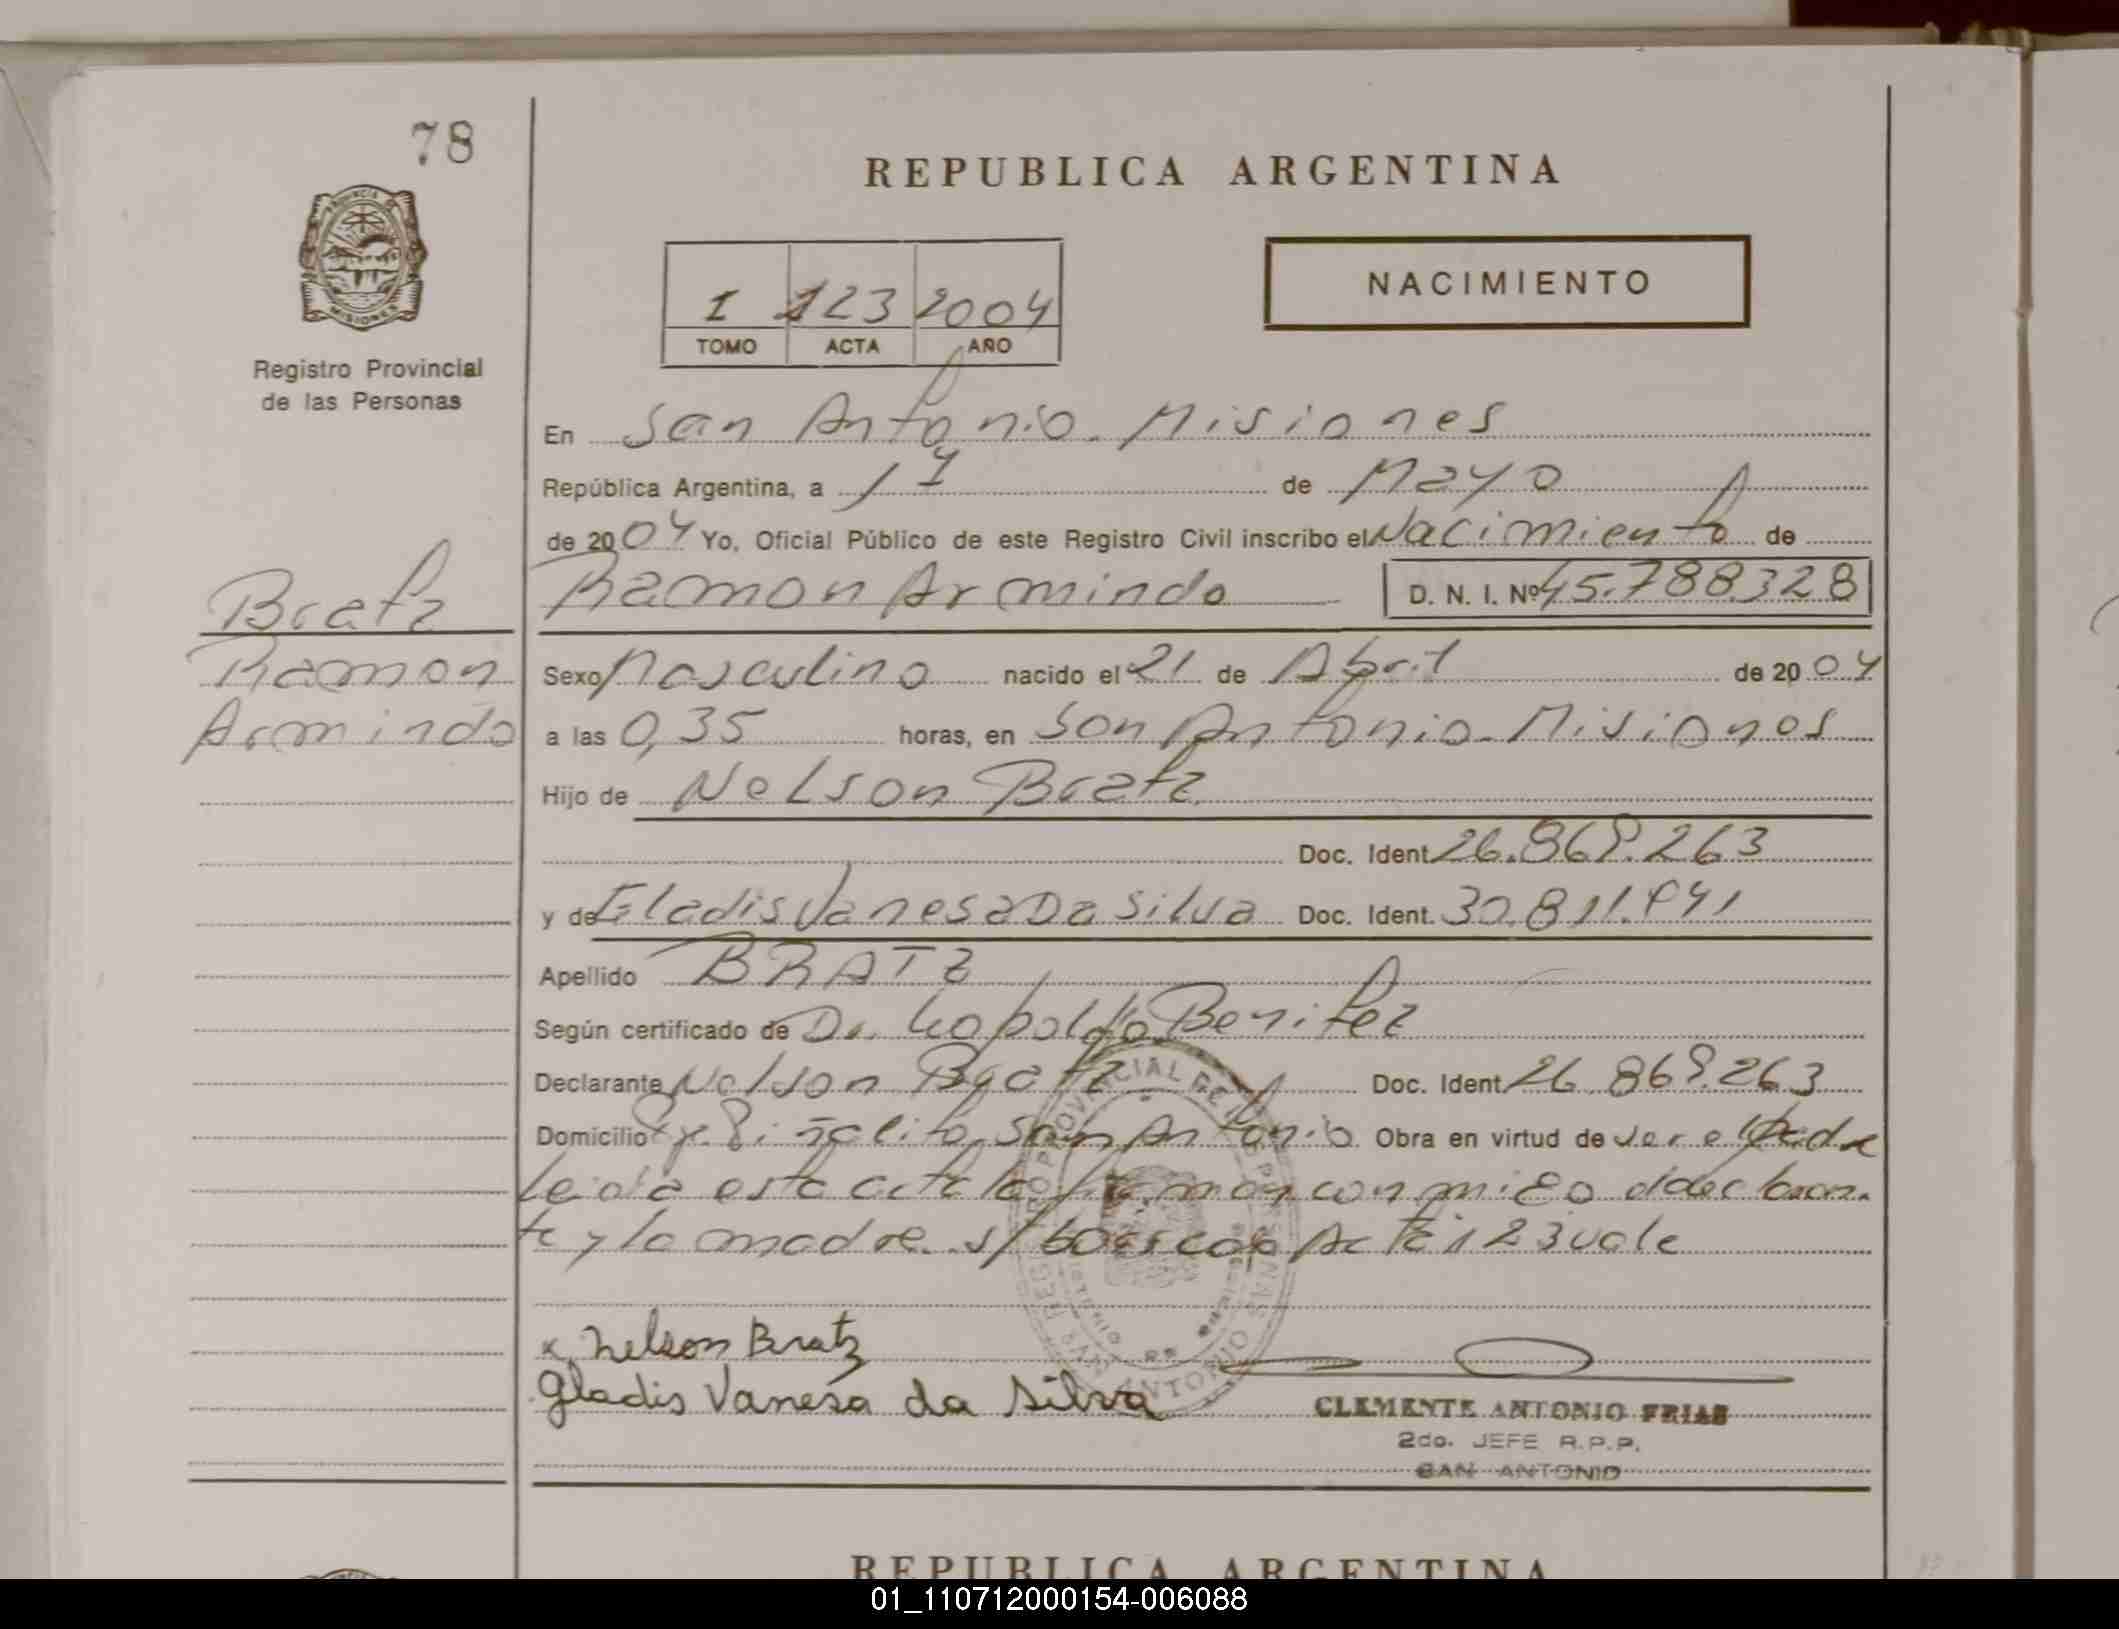 78
REPUBLICA ARGENTINA
PROVINCIA DE
MISIONES
Registro Provincial
de las Personas
NACIMIENTO
I 123 2004
TOMO ACTA AÑO
En San Antonio. Misiones
República Argentina, a 17 de Mayo
de 2004 Yo, Oficial Público de este Registro Civil inscribo el Nacimiento de
Bratz
Ramon Armindo D. N. I. Nº 45.788.328
Ramon
Armindo
Sexo Masculino nacido el 21 de Abril de 2004
a las 0,35 horas, en San Antonio - Misiones
Hijo de Nelson Bratz
Doc. Ident. 26.869.263
y de Gladis Vanesa Da Silva Doc. Ident. 30.811.941
Apellido BRATZ
Según certificado de Dr. Leopoldo Benitez
Declarante Nelson Bratz Doc. Ident. 26.869.263
Domicilio San Antonio Obra en virtud de ser el Padre
Leida esta acta la firman conmigo el declaran-
te y la madre. s/borrado Acta 123 vale
x Nelson Bratz
Gladis Vanesa da Silva
REGISTRO PROVINCIAL DE LAS PERSONAS
SAN ANTONIO
CLEMENTE ANTONIO FRIAS
2do. JEFE R.P.P.
SAN ANTONIO
REPUBLICA ARGENTINA
01_110712000154-006088